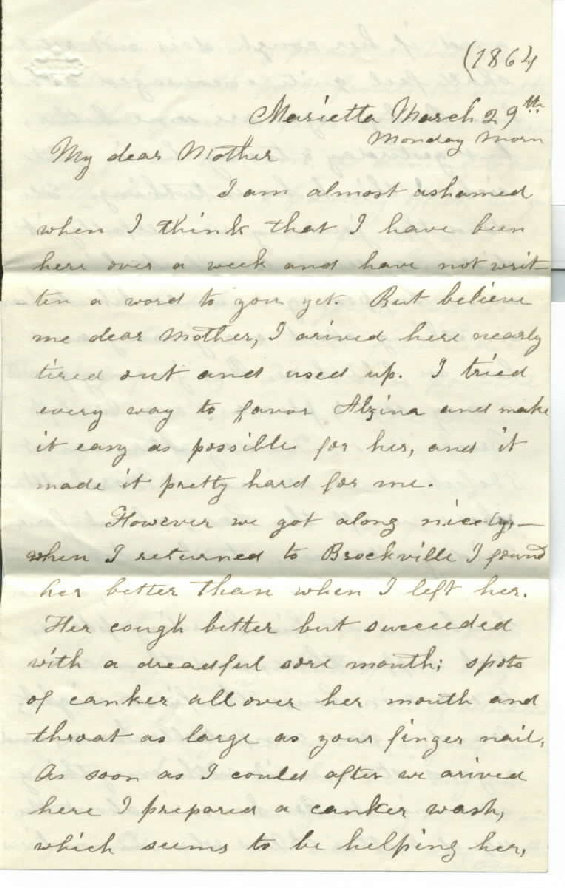 (1864
Marietta March 29th
Monday Morn
My dear Mother
I am almost ashamed
when I think that I have been
here over a week and have not writ-
ten a word to you yet. But believe
me dear Mother, I arived here nearly
tired out and used up. I tried
every way to favor Alzina and make
it easy as possible for her, and it
made it pretty hard for me.
However we got along nicely,—
when I returned to Brockville I found
her better than when I left her.
Her cough better but succeeded
with a dreadful sore mouth; spots
of canker all over her mouth and
throat as large as your finger nail,
As soon as I could after we arived
here I prepared a canker wash,
which seems to be helping her,